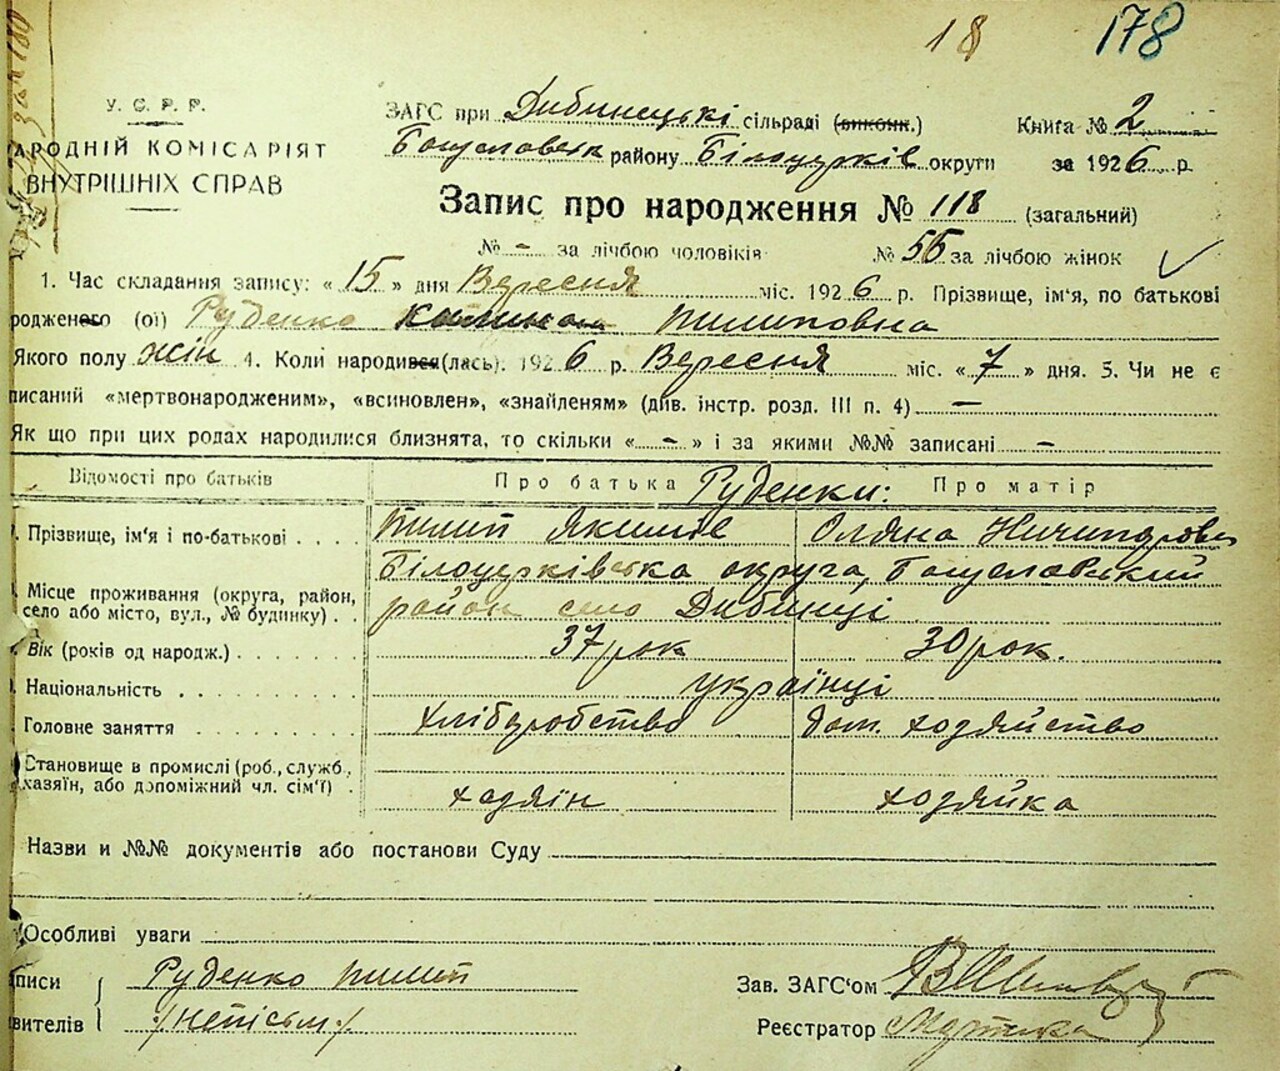 18 178
У. С. Р. Р.
АРОДНІЙ КОМІСАРІЯТ
ВНУТРІШНІХ СПРАВ
ЗАГС при Дибинецькі сільраді (виконк.) Книга № 2
Богуславськ району Білоцерків округи за 1926 р.
Запис про народження № 118 (загальний)
№ - за лічбою чоловіків № 56 за лічбою жінок
1. Час складання запису: « 15 » дня Вересня міс. 1926 р. Прізвище, ім'я, по батькові
родженого (ої) Руденко Пилиповна
Якого полу жін 4. Коли народився(лась): 1926 р. Вересня міс. « 7 » дня. 5. Чи не є
писаний «мертвонародженим», «всиновлен», «знайденям» (див. інстр. розд. III п. 4) —
Як що при цих родах народилися близнята, то скільки « - » і за якими №№ записані —
Відомості про батьків Про батька Руденки: Про матір
Прізвище, ім'я і по-батькові Пилип Якимів Оляна Ничипоровн
Білоцерківська округа, Богуславський
Місце проживання (округа, район, село або місто, вул., № будинку) район село Дибинці
Вік (років од народж.) 37 рок 30 рок.
Національність українці
Головне заняття хліборобство дом. хозяйство
Становище в промислі (роб., служб.,
хазяїн, або допоміжний чл. сім'ї) хазяїн хозяйка
Назви и №№ документів або постанови Суду
Особливі уваги
писи Руденко Пилип Зав. ЗАГС'ом
вителів /непісьм/ Реєстратор